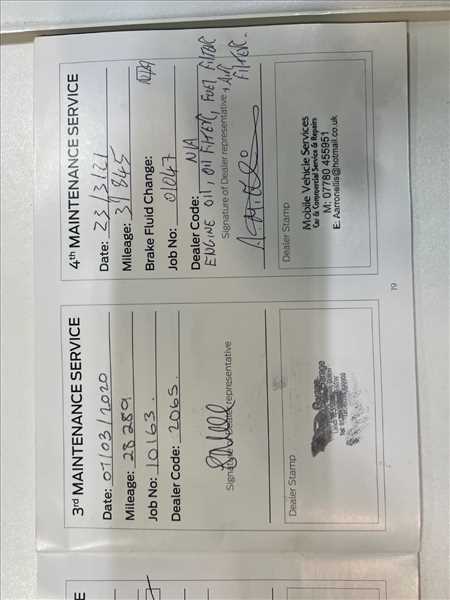 3rd MAINTENANCE SERVICE
Date: 07/03/2020
Mileage: 28289
Job No: 10163.
Dealer Code: 2065.
Signature of Dealer representative
Dealer Stamp
4th MAINTENANCE SERVICE
Date: 23/3/21
Mileage: 31845
Brake Fluid Change: N/A
Job No: 01047
Dealer Code: N/A
ENGINE OIL, OIL FILTER, FUEL FILTER
+ AIR FILTER.
Signature of Dealer representative
Dealer Stamp
Mobile Vehicle Services
Car & Commercial Service & Repairs
M: 07780 455951
E: Aarronellis@hotmail.co.uk
19